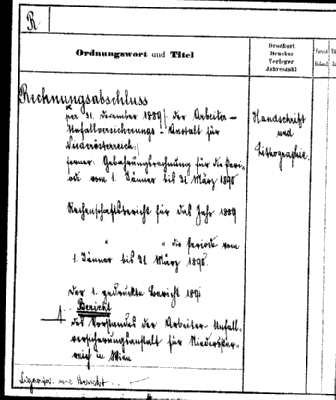 R
Ordnungswort und Titel
Druckort
Drucker
Verleger
Jahreszahl
Rechnungsabschluss
per 31. December 1889/ der Arbeiter-
Unfallversicherungs-Anstalt für
Niederösterreich:/
Handschrift
und
Lithographie.
ferner: Gebahrungsrechnung für die Peri-
ode vom 1. Jänner bis 31. März 1890
Rechenschaftsbericht für das Jahr 1889
" " die Periode vom
1. Jänner bis 31. März 1890.
Der 1. gedruckte Bericht 189
Bericht
des Vorstandes der Arbeiter-Unfall-
versicherungsanstalt für Niederöster-
reich in Wien